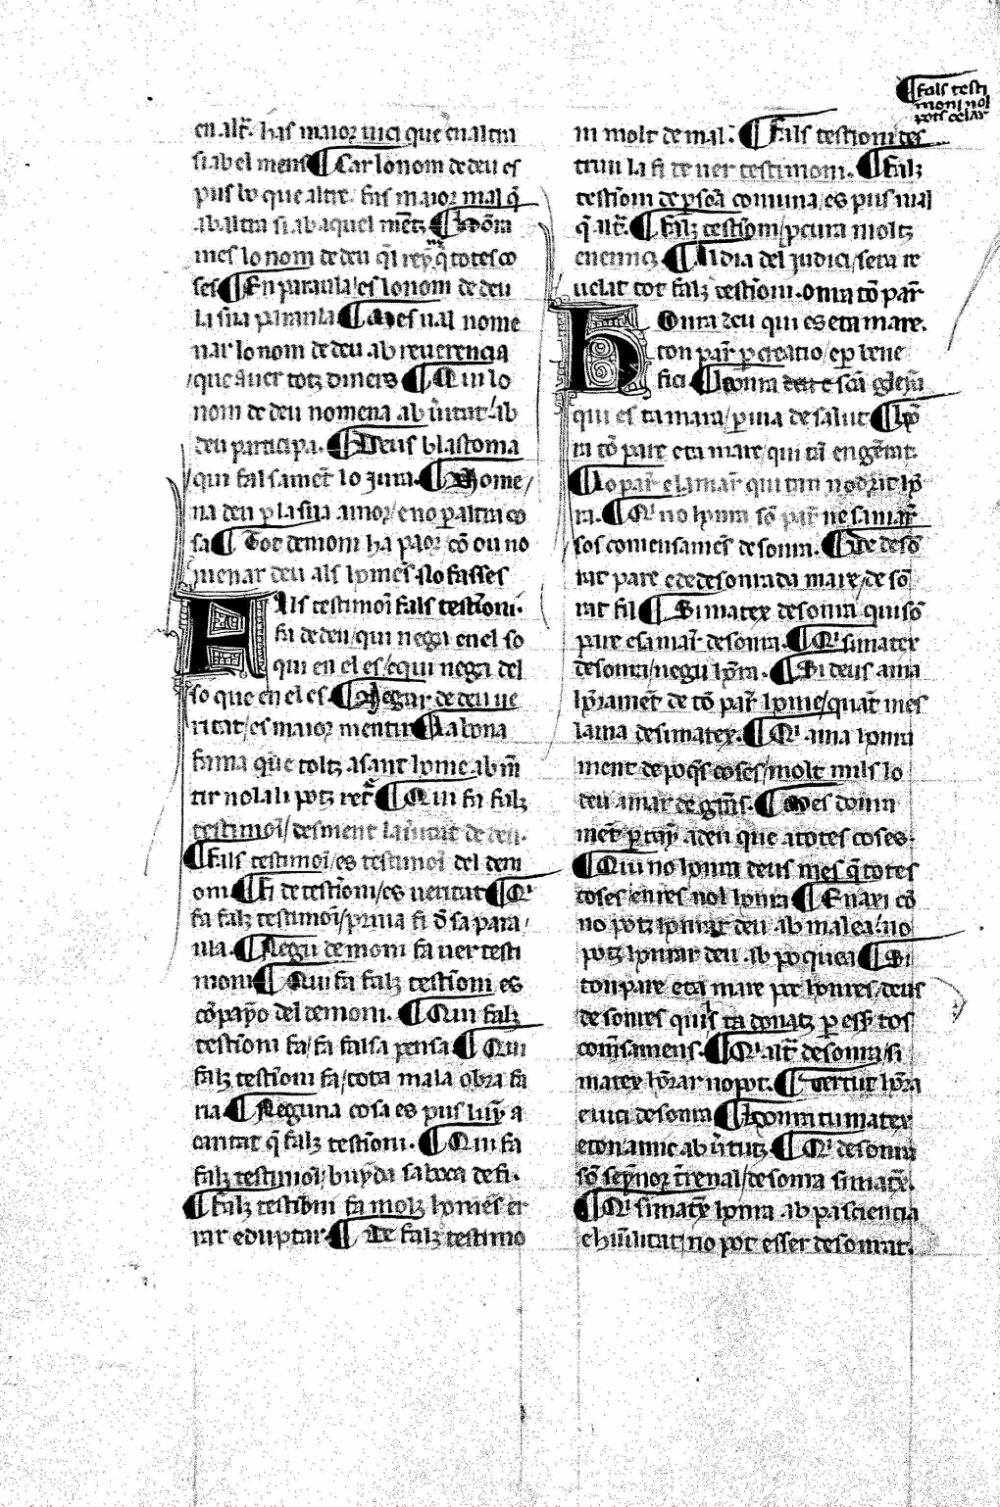 fals testi
moni nol
pots celar
en altr̄. has maior uici que en altra
si ab el mens ¶ Car lo nom de deu es
pus lo que altre. fas maior mal q̄
ab altra si ab aquel mētz ¶ hōra
mes lo nom de deu q̄l rey q̄ totes co
ses ¶ En paraula / es lo nom de deu
la sua paraula ¶ Mes ual nome
nar lo nom de deu ab reuerencia
que auer totz diners ¶ Qui lo
nom de deu nomena ab ūtut / ab
deu participa. ¶ Deus blastoma
qui falsamēt lo jura. ¶ Nome
na deu p la sua amor / e no p altra co
sa ¶ Tot demoni ha paor cō ou no
menar deu als homēs. No fasses
Als testimoī Fals testīoni.
fa de deu / qui nega en el so
qui en el es / e qui nega del
so que en el es. ¶ Negar de deu ue
ritat / es maior mentir ¶ La bona
fama que toltz a sant home ab mē
tir no la li potz retr̄ ¶ Qui fa falz
testimoī / desment la ūitat de deu.
¶ Fals testimoī / es testimoī del dem
oni ¶ Fi de testīoni / es ueritat ¶ Qi
fa falz testimoī / priua fi d̄ sa para
ula. ¶ Negu demoni fa uer testi
moni ¶ Qui fa falz testīoni es
cōpayo del demoni. ¶ Qui falz
testīoni fa / fa falsa pensa ¶ Qui
falz testīoni fa / tota mala obra fa
ria. ¶ Neguna cosa es pus luȳ a
caritat q̄ falz testīoni. ¶ Qui fa
falz testimoī / buyda sa boca de fi.
¶ Falz testīoni fa molz homēs er
rar e duptar. ¶ De falz testimo
ni molt de mal. ¶ Fals testīoni des
truu la fi de uer testimoni. ¶ Falz
testīoni de psoa comuna / es pus mal
q̄ altr̄. ¶ Falz testīoni / pcura moltz
enemics. ¶ Al dia del judici / sera re
uelat tot falz testīoni. Onra tō par̄
Onra deu qui es e ta mare.
ton par̄ p creatio / e p bene
fici ¶ honra deu e scā gleya
qui es ta mara / p uia de salut ¶ hō
ra tō pare e ta mare / qui tā engērat.
¶ Lo par̄ e la mar̄ qui tan nodrit hō
ra. ¶ Qi no honra sō par̄ ne sa mar̄
sos comensamēs desonra. ¶ De desō
rat pare e de desonrada mare / desō
rat fil ¶ Si matex desonra qui sō
pare e sa mar̄ desonra. ¶ Qi si matex
desonra / negu hōra. ¶ Si deus ama
hōramēt de tō par̄ home / quāt mes
lama de si matex. ¶ Qi ama honra
ment de poqēs coses / molt mils lo
deu amar de grans. ¶ Mes donra
mēt ptaȳ a deu que a totes coses.
¶ Qui no honra deus mes q̄ totes
coses / en res nol honra ¶ En axi cō
no potz honrar deu ab malea / no
potz honrar deu ab poquea ¶ Si
ton pare e ta mare per honres / deus
desonres quils ta donatz p esser tos
comēsamens. ¶ Qi altr̄ desonra / si
matex hōrar no pot. ¶ Uertut hōra
e uici desonra ¶ honra tu matex
e ton amic ab ūtutz. ¶ Qi desonra
sō seȳnor t̄renal / desonra si matex̄.
¶ Qi si matex̄ honra ab pasciencia
e hūilitat / no pot esser desonrat.